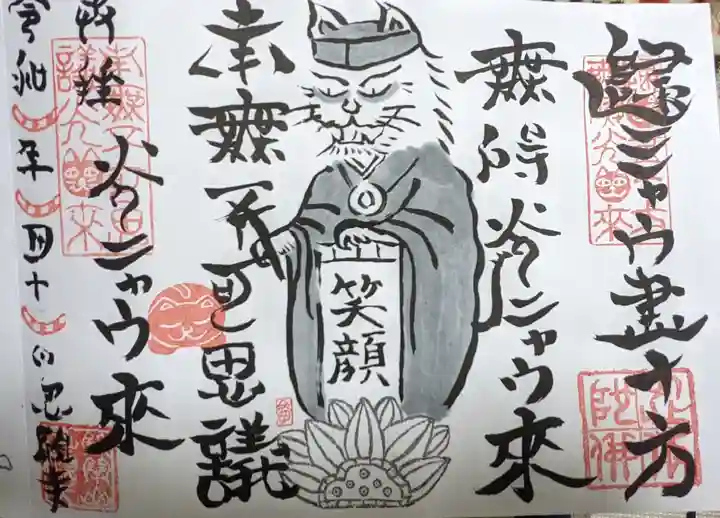 歸ミャウ盡十方
無碍光ニャウ來
笑顔
南無不可思議
光ニャウ來
奉拝
令和 年 月十 日